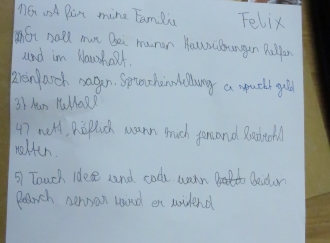 1) Er ist für meine Familie Felix
2) Er soll mir bei meinen Hausübungen helfen
und im Haushalt.
2) einfach sagen. Spracheinstellung er spricht geld
3) Aus Mettall
4) nett, höflich wenn mich jemand bedroht
retten.
5) Touch Idee und code wenn
falsch sensor wird er wütend